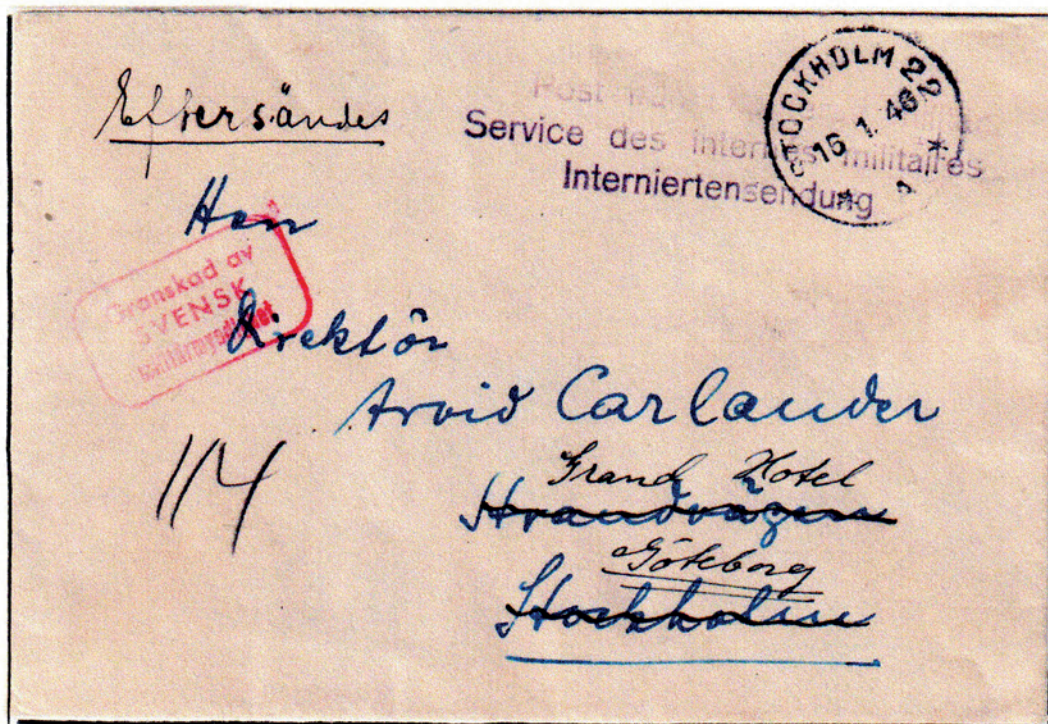 Eftersändes
Post
Service des internés militaires
Interniertensendung
STOCKHOLM 22
16 1. 46
Herr
Granskad av
SVENSK
Direktör
Arvid Carlander
Grand Hotel
Strandvägen
Göteborg
Stockholm